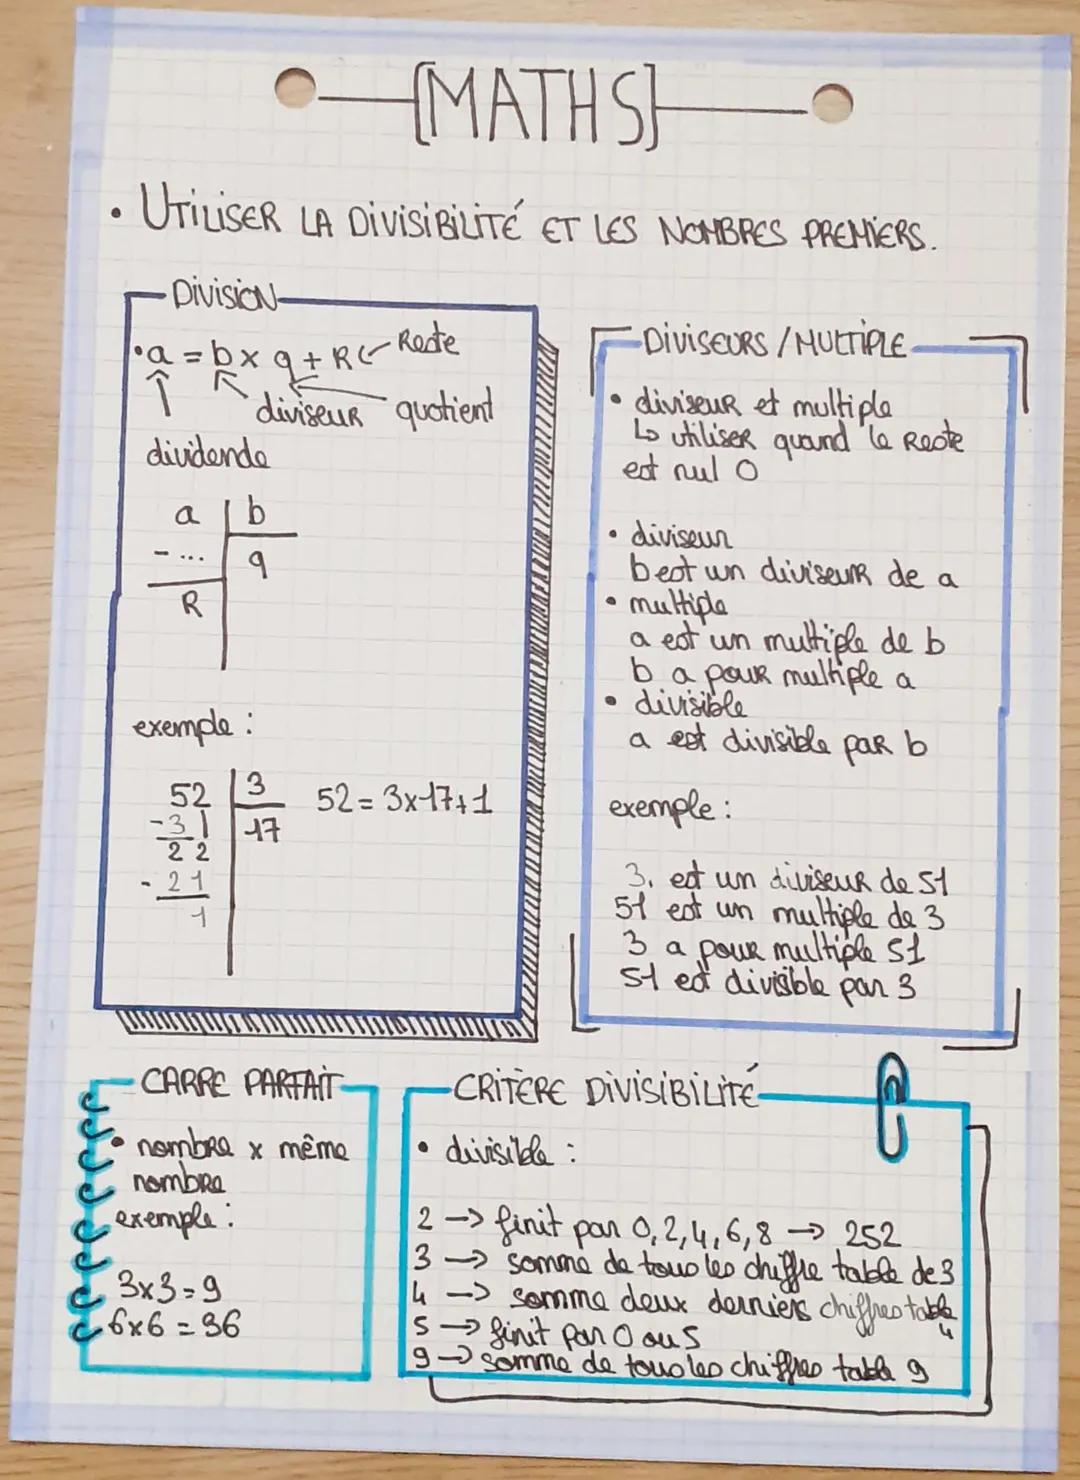 [MATHS]
• UTILISER LA DIVISIBILITÉ ET LES NOMBRES PREMIERS.
Division
• a = b x q + R ← Reste
diviseur quotient
dividende
a | b
- ... | q
R
exemple :
52 | 3
52 = 3x17+1
-3 | 17
22
- 21
1
DIVISEURS / MULTIPLE
• diviseur et multiple
↳ utiliser quand le Reste
est nul 0
• diviseur
b est un diviseur de a
• multiple
a est un multiple de b
b a pour multiple a
• divisible
a est divisible par b
exemple :
3. est un diviseur de 51
51 est un multiple de 3
3 a pour multiple 51
51 est divisible par 3
CARRE PARFAIT
• nombre x même
nombre
exemple :
3x3=9
6x6=36
CRITÈRE DIVISIBILITÉ
• divisible :
2 → finit par 0,2,4,6,8 → 252
3 → somme de tous les chiffre table de 3
4 → somme deux derniers chiffres table
4
5 → finit par 0 ou 5
9 → somme de tous les chiffres table 9